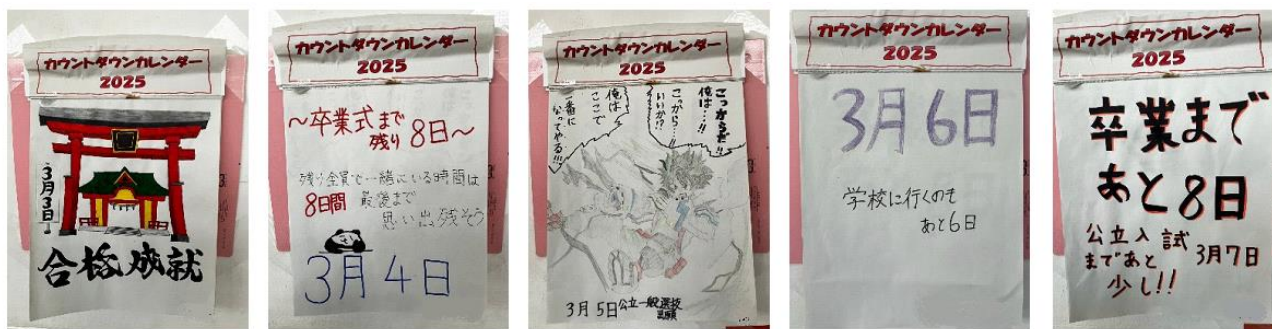 カウントダウンカレンダー
2025
3月3日
合格成就
カウントダウンカレンダー
2025
～卒業式まで
残り8日～
残り全員で一緒にいる時間は
8日間 最後まで
思い出残そう
3月4日
カウントダウンカレンダー
2025
こっからだ!!
俺は…!!
こっから…
いいか!?
俺は
ここで
一番に
なってやる!!!
3月5日 公立一般選抜
出願
カウントダウンカレンダー
2025
3月6日
学校に行くのも
あと6日
カウントダウンカレンダー
2025
卒業まで
あと8日
公立入試
まであと
少し!!
3月7日